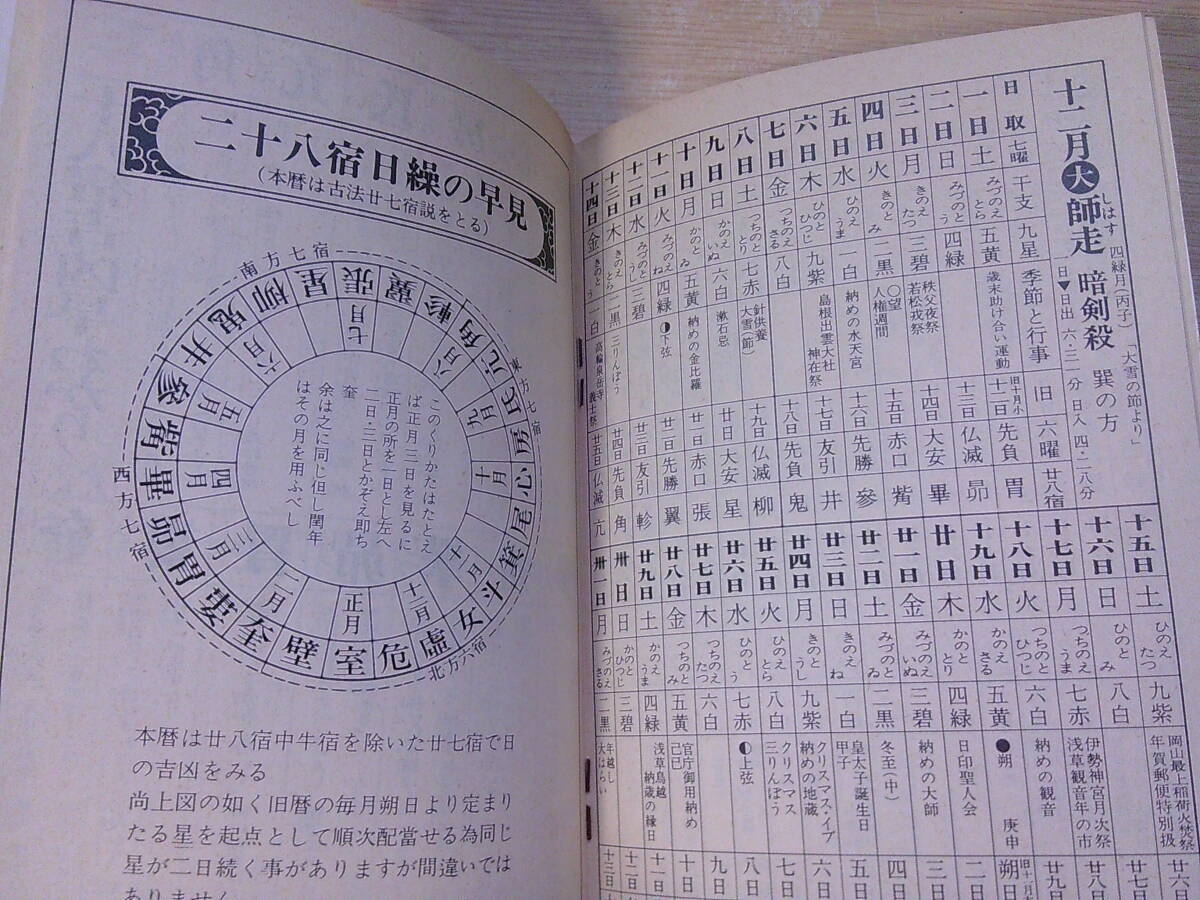 二十八宿日繰の早見
(本暦は古法廿七宿説をとる)
南方七宿
東方七宿
北方六宿
西方七宿
角
亢
氐
房
心
尾
箕
斗
女
虚
危
室
壁
奎
婁
胃
昴
畢
觜
參
井
鬼
柳
星
張
翼
軫
正月
二月
三月
四月
五月
六月
七月
八月
九月
十月
十一月
十二月
このくりかたはたとえ
ば正月三日を見るに
正月の所を一日とし左へ
二日・三日とかぞえ即ち
奎
余は之に同じ但し閏年
はその月を用ふべし
本暦は廿八宿中牛宿を除いた廿七宿で日
の吉凶をみる
尚上図の如く旧暦の毎月朔日より定まり
たる星を起点として順次配當せる為同じ
星が二日続く事がありますが間違いでは
ありません
十二月 大 師走 しはす 四緑月(丙子) 「大雪の節より」
暗剣殺 巽の方
一日▼日出 六・三一分 日入 四・二八分
日取 七曜 干支 九星 季節と行事 旧 六曜 廿八宿
一日 土 みづのえ とら 五黄 歳末助け合い運動 旧十一月小 十二日 先負 胃
二日 日 みづのと う 四緑 十三日 仏滅 昴
三日 月 きのえ たつ 三碧 秩父夜祭 若松戎祭 十四日 大安 畢
四日 火 きのと み 二黒 ○望 人権週間 十五日 赤口 觜
五日 水 ひのえ うま 一白 納めの水天宮 十六日 先勝 參
六日 木 ひのと ひつじ 九紫 島根出雲大社 神在祭 十七日 友引 井
七日 金 つちのえ さる 八白 十八日 先負 鬼
八日 土 つちのと とり 七赤 針供養 大雪(節) 十九日 仏滅 柳
九日 日 かのえ いぬ 六白 漱石忌 廿日 大安 星
十日 月 かのと ゐ 五黄 納めの金比羅 廿一日 赤口 張
十一日 火 みづのえ ね 四緑 下弦 廿二日 先勝 翼
十二日 水 みづのと うし 三碧 廿三日 友引 軫
十三日 木 きのえ とら 二黒 三りんぼう 廿四日 先負 角
十四日 金 きのと う 一白 高輪泉岳寺 義士祭 廿五日 仏滅 亢
十五日 土 ひのえ たつ 九紫 岡山最上稲荷火焚祭 年賀郵便特別扱 廿六日
十六日 日 ひのと み 八白 廿七日
十七日 月 つちのえ うま 七赤 伊勢神宮月次祭 浅草観音年の市 廿八日
十八日 火 つちのと ひつじ 六白 納めの観音 廿九日
十九日 水 かのえ さる 五黄 ●朔 庚申 朔日
廿日 木 かのと とり 四緑 日印聖人会 二日
廿一日 金 みづのえ いぬ 三碧 納めの大師 三日
廿二日 土 みづのと ゐ 二黒 冬至(中) 四日
廿三日 日 きのえ ね 一白 皇太子誕生日 甲子 五日
廿四日 月 きのと うし 九紫 クリスマス・イブ 納めの地蔵 六日
廿五日 火 ひのえ とら 八白 クリスマス 三りんぼう 七日
廿六日 水 ひのと う 七赤 上弦 八日
廿七日 木 つちのえ たつ 六白 九日
廿八日 金 つちのと み 五黄 官庁御用納め 己巳 十日
廿九日 土 かのえ うま 四緑 浅草鳥越 納歳の縁日 十一日
卅日 日 かのと ひつじ 三碧 十二日
卅一日 月 みづのえ さる 二黒 年越し 大はらい 十三日